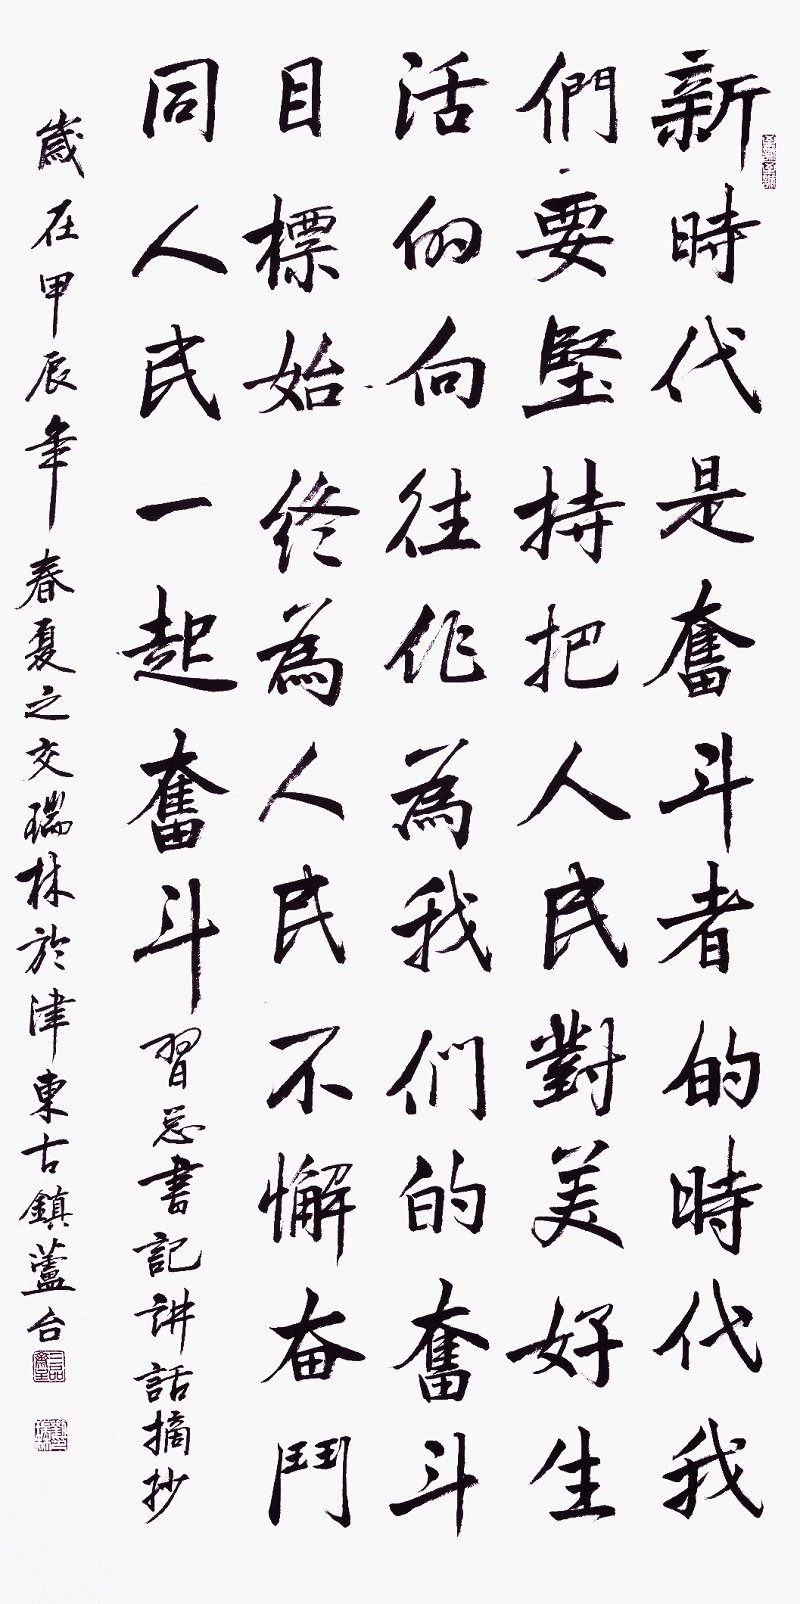 新時代是奮斗者的時代我
們要堅持把人民對美好生
活的向往作為我们的奮斗
目標始终為人民不懈奋鬥
同人民一起奮斗習总書記讲話摘抄
歲在甲辰年春夏之交瑞林於津東古鎮蘆台